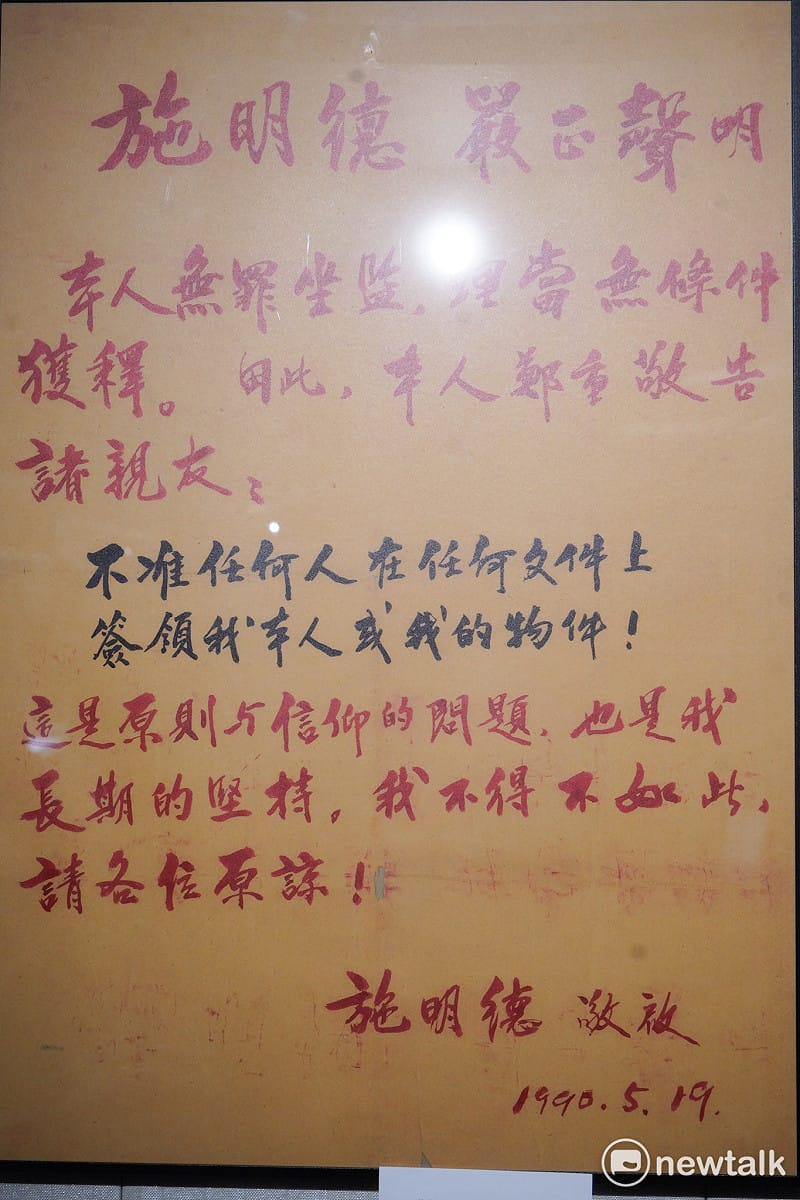 施明德 嚴正聲明
本人無罪坐監，理當無條件
獲釋。因此，本人鄭重敬告
諸親友：
不准任何人在任何文件上
簽領我本人或我的物件！
這是原則与信仰的問題，也是我
長期的堅持。我不得不如此，
請各位原諒！
施明德 敬啟
1990.5.19.
newtalk